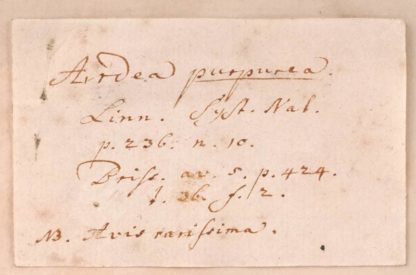 Ardea purpurea.
Linn. Syst. Nat.
p. 236. n. 10.
Briss. av. 5. p. 424.
t. 36. f. 2.
NB. Avis rarissima.